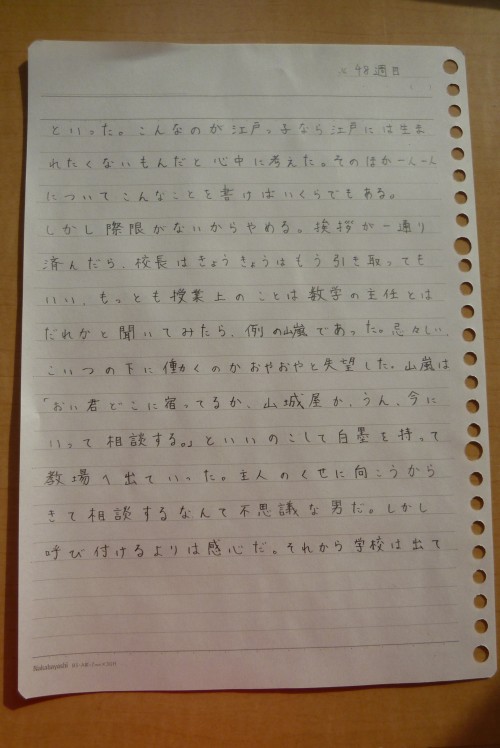 48週目
といった。こんなのが江戸っ子なら江戸には生ま
れたくないもんだと心中に考えた。そのほか一人一人
についてこんなことを書けばいくらでもある。
しかし際限がないからやめる。挨拶が一通り
済んだら、校長はきょうきょうはもう引き取っても
いい、もっとも授業上のことは数学の主任とは
だれかと聞いてみたら、例の山嵐であった。忌々しい、
こいつの下に働くのかおやおやと失望した。山嵐は
「おい君どこに宿ってるか、山城屋か、うん、今に
いって相談する。」といいのこして白墨を持って
教場へ出ていった。主人のくせに向こうから
きて相談するなんて不思議な男だ。しかし
呼び付けるよりは感心だ。それから学校は出て
Nakabayashi